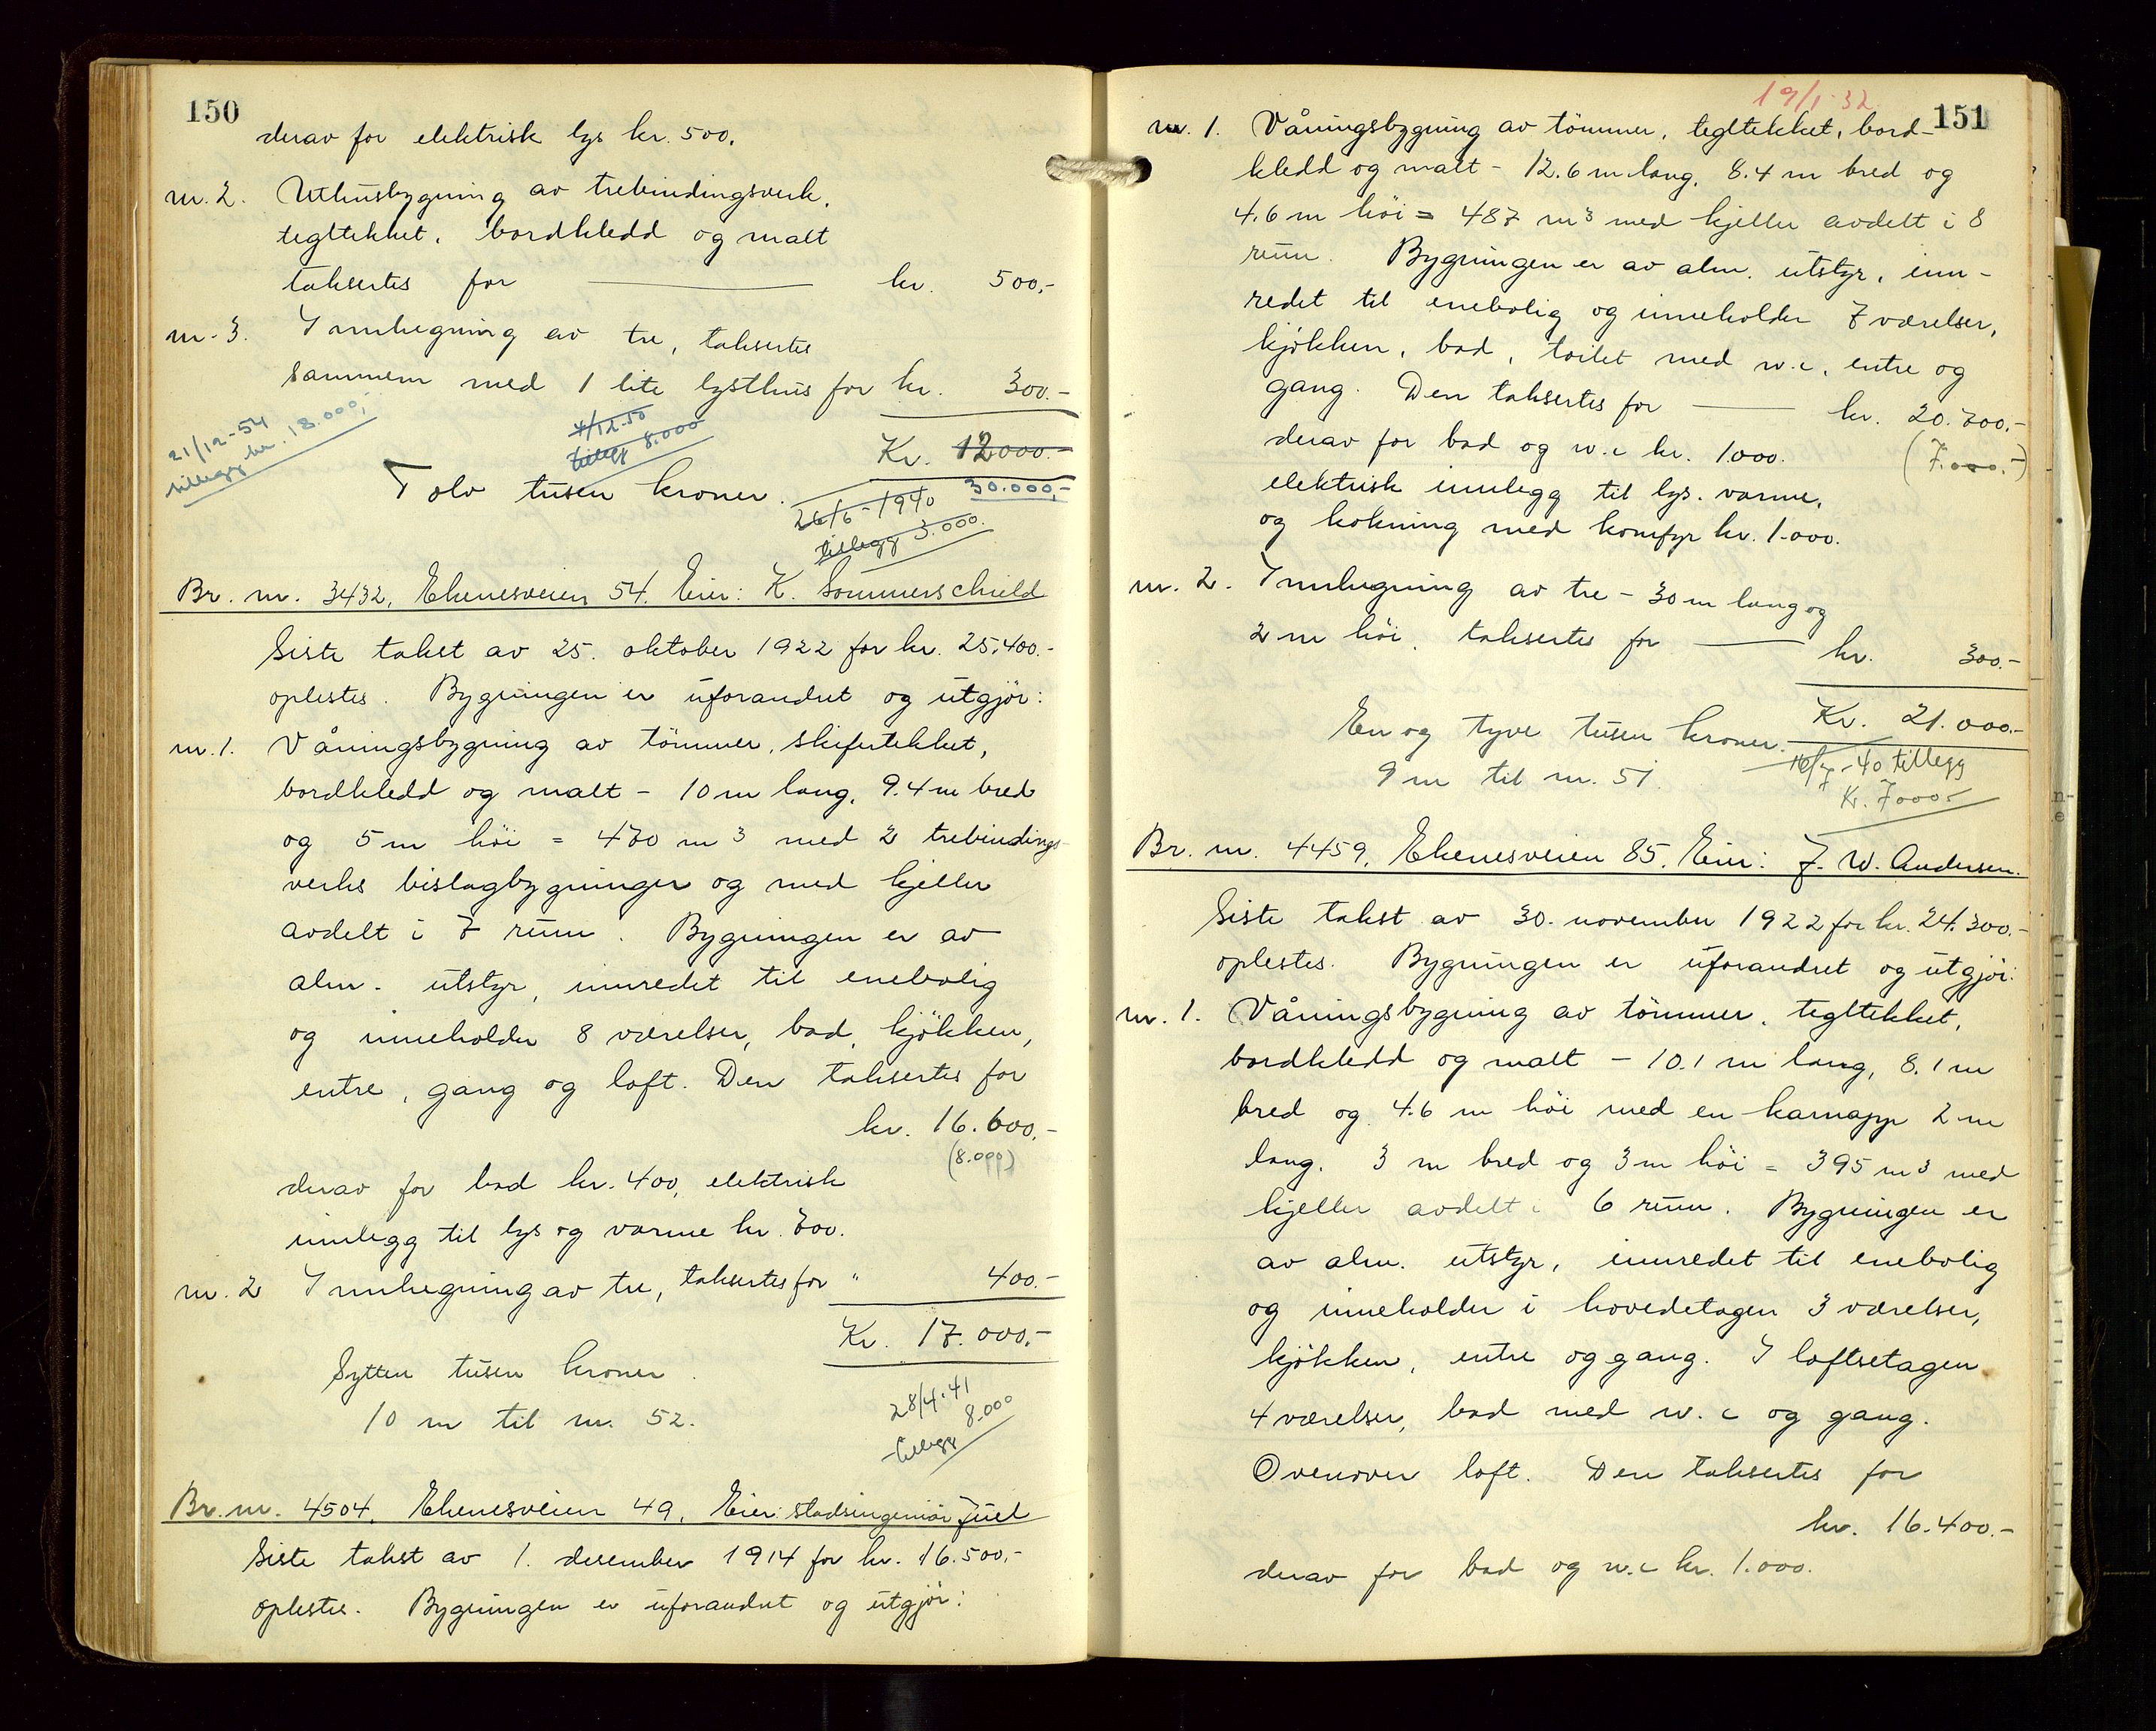 150
derav for elektrisk lys kr. 500.
nr. 2. Uthusbygning av trebindingsverk,
tegltekket, bordkledd og malt
taksertes for kr. 500,-
nr. 3. Innhegning av tre, taksertes
sammem med 1 lite lysthus for kr. 300.-
21/12-54
tillegg kr. 18.000,-
4/12.50
tillegg 8.000
Kr. 12000.-
30.000,-
Tolv tusen kroner.
26/6-1940
tillegg 3.000.
Br. nr. 3432, Ekenesveien 54. Eier: K. Sommerschield
Siste takst av 25. oktober 1922 for kr. 25,400.-
oplestes. Bygningen er uforandret og utgjör:
nr. 1. Våningsbygning av tömmer, skifertekket,
bordkledd og malt - 10 m lang, 9.4 m bred
og 5 m höi = 470 m3 med 2 trebindings-
verks bislagbygninger og med kjeller
avdelt i 7 rum. Bygningen er av
alm. utstyr, innredet til enebolig
og inneholder 8 værelser, bad, kjökken,
entre, gang og loft. Den taksertes for
kr. 16.600.-
(8.000)
derav for bad kr. 400, elektrisk
innlegg til lys og varme kr. 700.
nr. 2 Innhegning av tre, taksertes for " 400.-
Kr. 17.000.-
Sytten tusen kroner.
10 m til nr. 52.
28/4-41
tillegg 8.000
Br. nr. 4504, Ekenesveien 49, Eier: stadsingeniör Juel
Siste takst av 1. desember 1914 for kr. 16.500,-
oplestes. Bygningen er uforandret og utgjör:
19/1-32
151
nr. 1. Våningsbygning av tömmer, tegltekket, bord-
kledd og malt - 12.6 m lang, 8.4 m bred og
4.6 m höi = 487 m3 med kjeller avdelt i 8
rum. Bygningen er av alm. utstyr, inn-
redet til enebolig og inneholder 7 værelser,
kjökken, bad, toilet med w.c, entre og
gang. Den taksertes for kr. 20.700.-
derav for bad og w.c kr. 1000. (7.000.-)
elektrisk innlegg til lys, varme,
og kokning med komfyr kr. 1.000.
nr. 2. Innhegning av tre - 30 m lang og
2 m höi, taksertes for kr. 300.-
Kr. 21.000.-
En og tyve tusen kroner.
9 m til nr. 51.
16/7-40 tillegg
Kr. 7000.-
Br. nr. 4459, Ekenesveien 85. Eier: J. W. Andersen.
Siste takst av 30. november 1922 for kr. 24.300.-
oplestes. Bygningen er uforandret og utgjör:
nr. 1. Våningsbygning av tömmer, tegltekket,
bordkledd og malt - 10.1 m lang, 8.1 m
bred og 4.6 m höi med en karnapp 2 m
lang. 3 m bred og 3 m höi = 395 m3 med
kjeller avdelt i 6 rum. Bygningen er
av alm. utstyr, innredet til enebolig
og inneholder i hovedetagen 3 værelser,
kjökken, entre og gang. I loftsetagen
4 værelser, bad med w.c og gang.
Ovenover loft. Den taksertes for
kr. 16.400.-
derav for bad og w.c kr. 1.000.